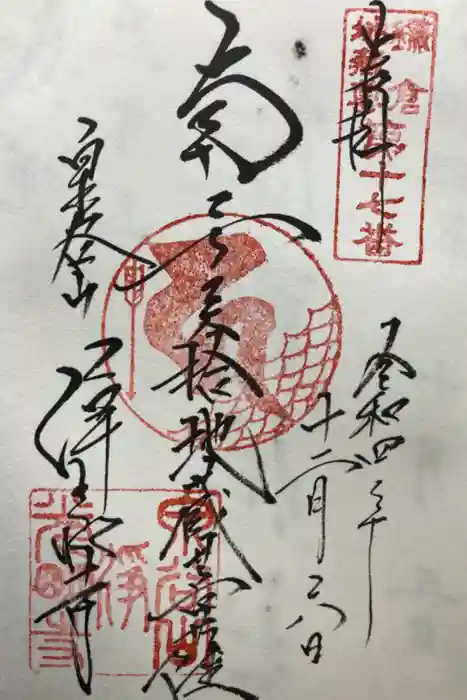 鎌倉
地蔵尊第十七番
奉拝
令和四年
十二月二八日
南無矢拾地蔵菩薩
泉谷山
浄光明寺